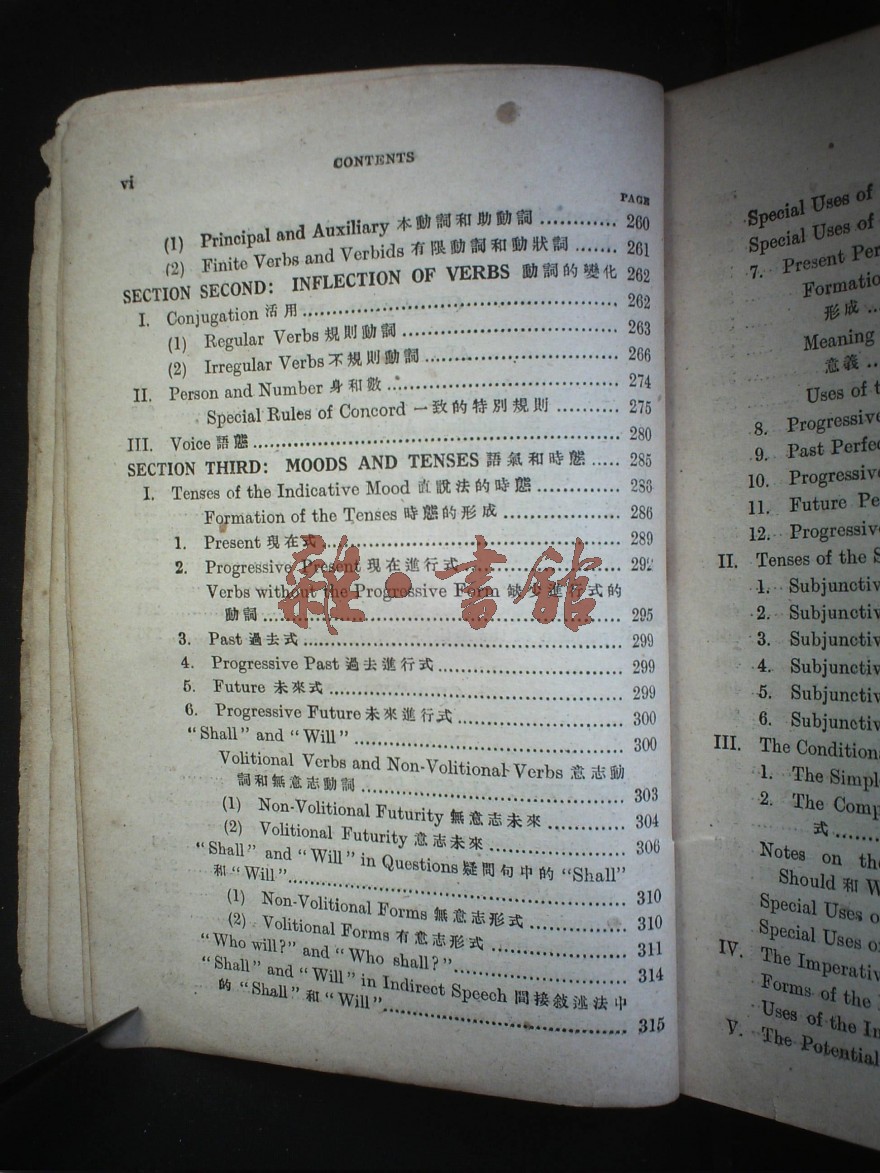 vi
CONTENTS
PAGE
(1) Principal and Auxiliary 本動詞和助動詞 ............ 260
(2) Finite Verbs and Verbids 有限動詞和動狀詞 ....... 261
SECTION SECOND: INFLECTION OF VERBS 動詞的變化 262
I. Conjugation 活用 ............ 262
(1) Regular Verbs 規則動詞 ............ 263
(2) Irregular Verbs 不規則動詞 ............ 266
II. Person and Number 身和數 ............ 274
Special Rules of Concord 一致的特別規則 .......... 275
III. Voice 語態 ............ 280
SECTION THIRD: MOODS AND TENSES 語氣和時態 ..... 285
I. Tenses of the Indicative Mood 直説法的時態 ............ 286
Formation of the Tenses 時態的形成 ............ 286
1. Present 現在式 ............ 289
2. Progressive Present 現在進行式 ............ 292
Verbs without the Progressive Form 缺少進行式的
動詞 ............ 295
3. Past 過去式 ............ 299
4. Progressive Past 過去進行式 ............ 299
5. Future 未來式 ............ 299
6. Progressive Future 未來進行式 ............ 300
"Shall" and "Will" ............ 300
Volitional Verbs and Non-Volitional Verbs 意志動
詞和無意志動詞 ............ 303
(1) Non-Volitional Futurity 無意志未來 ............ 304
(2) Volitional Futurity 意志未來 ............ 306
"Shall" and "Will" in Questions 疑問句中的 "Shall"
和 "Will" ............ 310
(1) Non-Volitional Forms 無意志形式 ............ 310
(2) Volitional Forms 有意志形式 ............ 311
"Who will?" and "Who shall?" ............ 314
"Shall" and "Will" in Indirect Speech 間接敍述法中
的 "Shall" 和 "Will" ............ 315
雜·書館
Special Uses of
Special Uses of
7. Present Per
Formatio
形成 ...
Meaning
意義 ...
Uses of t
8. Progressive
9. Past Perfe
10. Progressiv
11. Future Pe
12. Progressiv
II. Tenses of the S
1. Subjunctiv
2. Subjunctiv
3. Subjunctiv
4. Subjunctiv
5. Subjunctiv
6. Subjunctiv
III. The Condition
1. The Simpl
2. The Comp
式 .......
Notes on the
Should 和 W
Special Uses o
Special Uses o
IV. The Imperativ
Forms of the
Uses of the In
V. The Potential